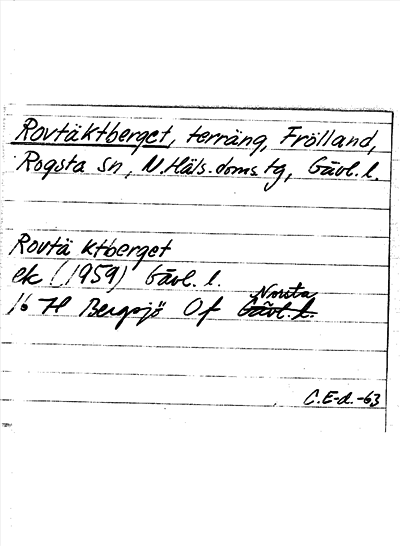 Rovtäktberget, terräng, Frölland,
Rogsta sn, N.Häls.doms.tg, Gävl.l.
Rovtä ktberget
ek (1959) Gävl. l.
Norra
16 H Bergsjö Of Gävl. l.
C.E-d.-63